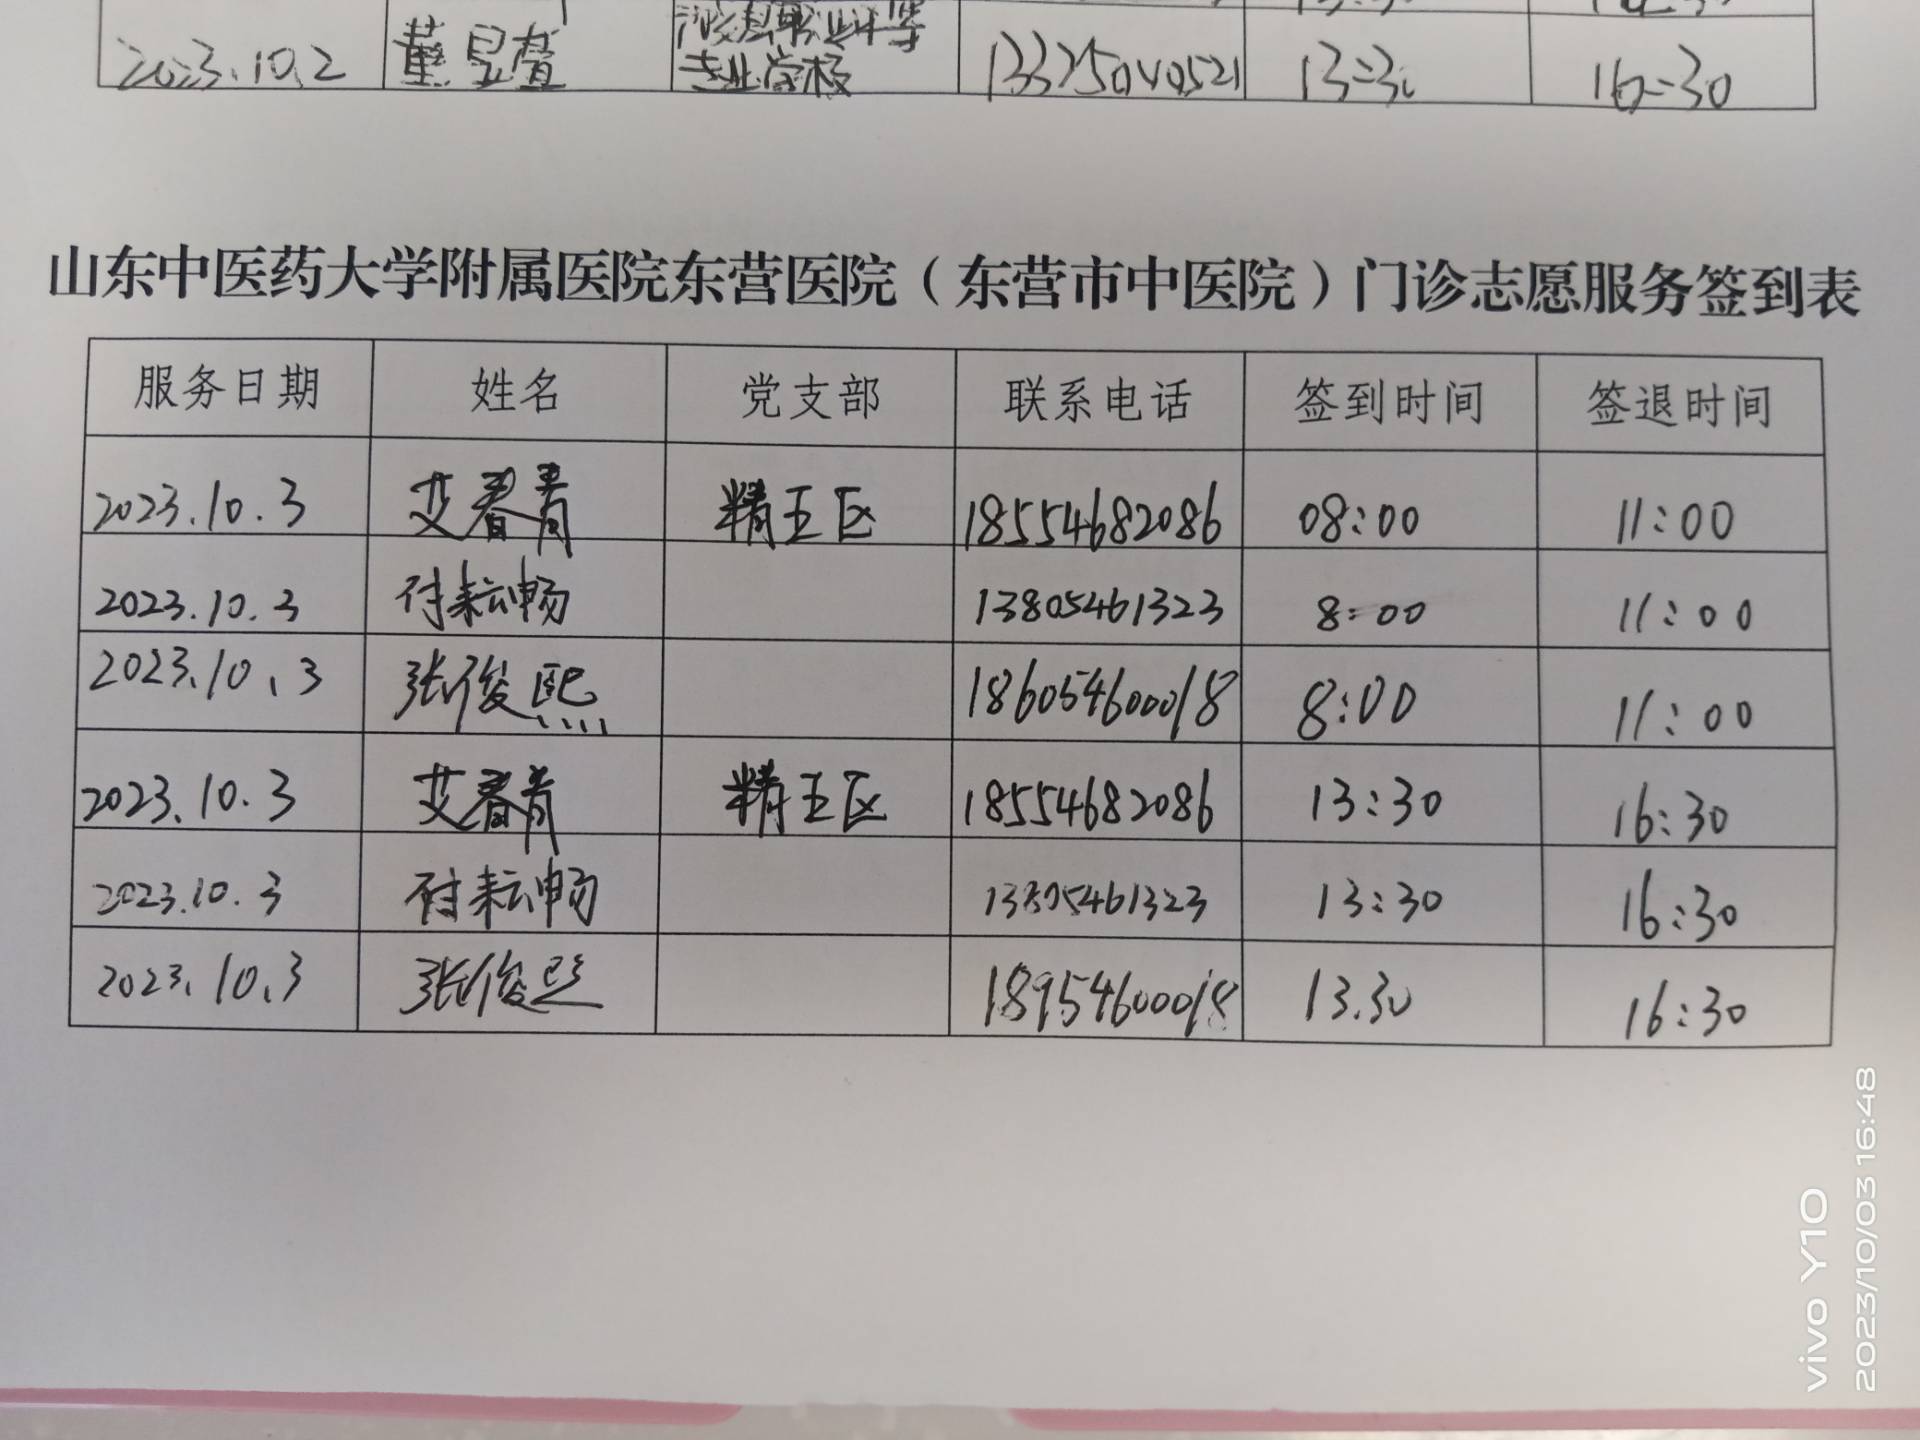 2023.10.2 董昱萱 专业学校 13:30 16:30
山东中医药大学附属医院东营医院（东营市中医院）门诊志愿服务签到表
服务日期 姓名 党支部 联系电话 签到时间 签退时间
2023.10.3 艾春青 精王区 18554682086 08:00 11:00
2023.10.3 付耘畅 13805461323 8:00 11:00
2023.10.3 张俊熙 18605460018 8:00 11:00
2023.10.3 艾春青 精王区 18554682086 13:30 16:30
2023.10.3 付耘畅 13805461323 13:30 16:30
2023.10.3 张俊熙 18954600018 13.30 16:30
vivo Y10
2023/10/03 16:48